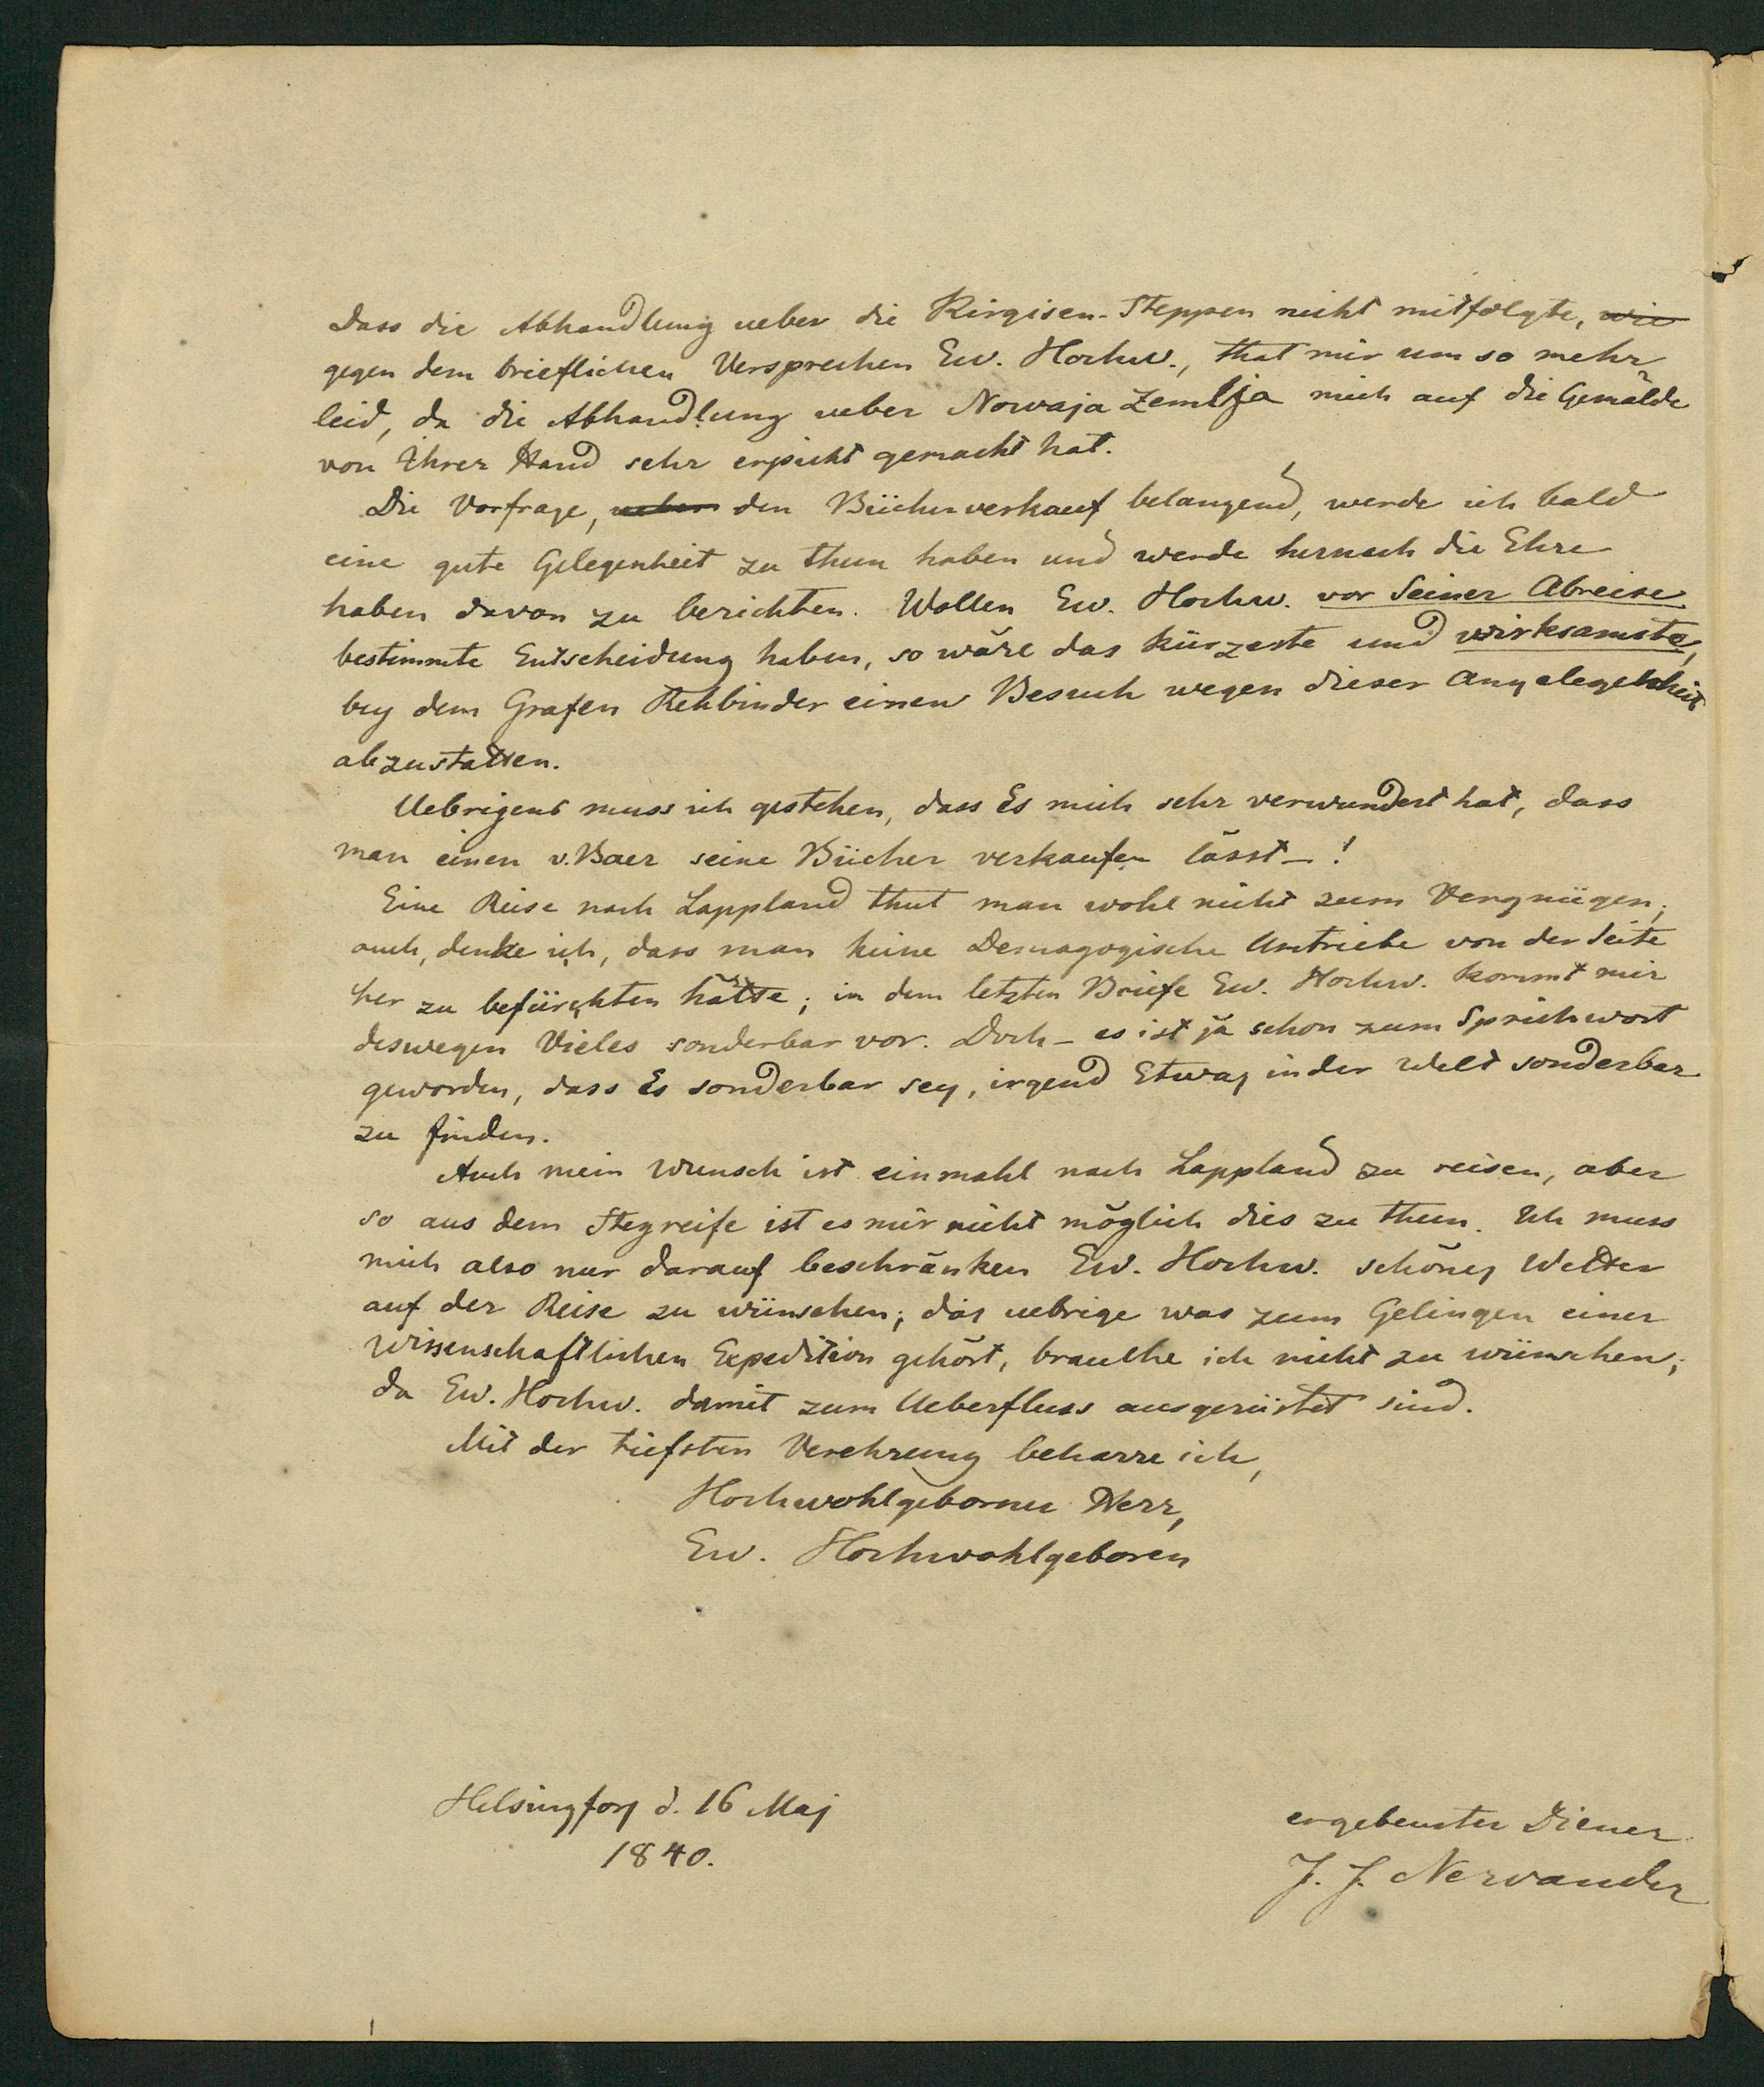 Dass die Abhandlung ueber die Kirgisen-Steppen nicht mitfolgte, wie
gegen dem brieflichen Versprechen Ew. Hochw., that mir um so mehr
leid, da die Abhandlung ueber Nowaja Zemlja mich auf die Gemälde
von Ihrer Hand sehr erpicht gemacht hat.
Die Vorfrage, ueber den Bücherverkauf belangend, werde ich bald
eine gute Gelegenheit zu thun haben und werde hernach die Ehre
haben davon zu berichten. Wollen Ew. Hochw. vor Seiner Abreise
bestimmte Entscheidung haben, so wäre das kürzeste und wirksamste,
bey dem Grafen Rehbinder einen Besuch wegen dieser Angelegenheit
abzustatten.
Uebrigens muss ich gestehen, dass Es mich sehr verwundert hat, dass
man einen v. Baer seine Bücher verkaufen lässt – !
Eine Reise nach Lappland thut man wohl nicht zum Vergnügen;
auch, denke ich, dass man keine Demagogische Umtriebe von der Seite
her zu befürchten hätte; in dem letzten Briefe Ew. Hochw. kommt mir
deswegen Vieles sonderbar vor. Doch – es ist ja schon zum Sprichwort
geworden, dass Es sonderbar sey, irgend Etwas in der Welt sonderbar
zu finden.
Auch mein Wunsch ist einmahl nach Lappland zu reisen, aber
so aus dem Stegreife ist es mir nicht möglich dies zu thun. Ich muss
mich also nur darauf beschränken Ew. Hochw. schönes Wetter
auf der Reise zu wünschen; das uebrige was zum Gelingen einer
wissenschaftlichen Expedition gehört, brauche ich nicht zu wünschen,
da Ew. Hochw. damit zum Ueberfluss ausgerüstet sind.
Mit der tiefsten Verehrung beharre ich,
Hochwohlgeborner Herr,
Ew. Hochwohlgeboren
Helsingfors d. 16 Maj
1840.
ergebenster Diener
J. J. Nervander